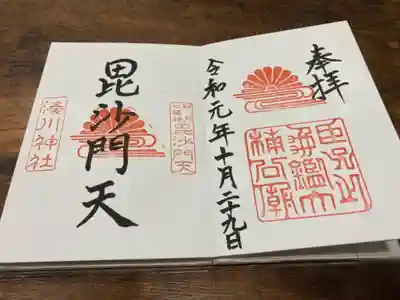 奉拝
令和元年十月二十九日
毘沙門天
毘沙門天
湊川神社